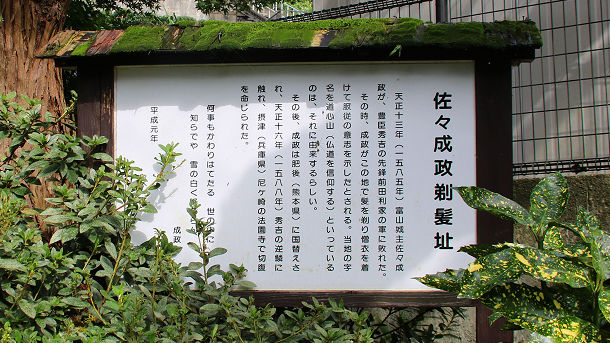 佐々成政剃髪址
天正十三年(一五八五年)富山城主佐々成
政が、豊臣秀吉の先鋒前田利家の軍に敗れた。
その時、成政がこの地で髪を剃り僧衣を着
けて服従の意志を示したとされる。当地の字
名を道心山(仏道を信仰する)といっている
のは、それに由来するらしい。
その後、成政は肥後(熊本県)に国替えさ
れ、天正十六年(一五八八年)秀吉の逆鱗に
触れ、摂津(兵庫県)尼ケ崎の法園寺で切腹
を命じられた。
何事もかわりはてたる 世の中に
知らでや 雪の白く
成政
平成元年